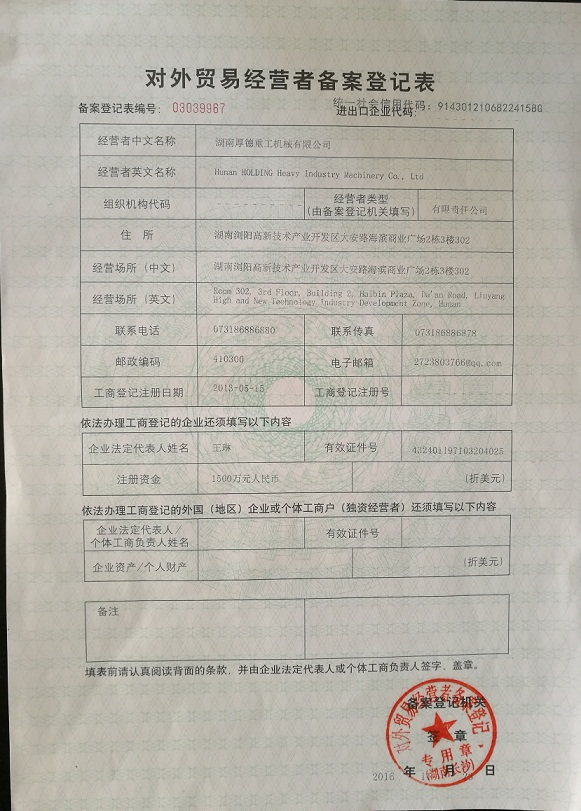 对外贸易经营者备案登记表
备案登记表编号: 03039967
统一社会信用代码: 91430121068224158G
进出口企业代码:
经营者中文名称 湖南厚德重工机械有限公司
经营者英文名称 Hunan HOLDING Heavy Industry Machinery Co., Ltd
组织机构代码 经营者类型 有限责任公司
(由备案登记机关填写)
住 所 湖南浏阳高新技术产业开发区大安路海滨商业广场2栋3楼302
经营场所 (中文) 湖南浏阳高新技术产业开发区大安路海滨商业广场2栋3楼302
经营场所 (英文) Room 302, 3rd Floor, Building 2, Haibin Plaza, Da'an Road, Liuyang
High and New Technology Industry Development Zone, Hunan
联系电话 073186886880 联系传真 073186886878
邮政编码 410300 电子邮箱 2723803766@qq.com
工商登记注册日期 2013-05-15 工商登记注册号
依法办理工商登记的企业还须填写以下内容
企业法定代表人姓名 王琳 有效证件号 432401197103204025
注册资金 1500万元人民币 (折美元)
依法办理工商登记的外国 (地区) 企业或个体工商户 (独资经营者) 还须填写以下内容
企业法定代表人/ 有效证件号
个体工商负责人姓名
企业资产/个人财产 (折美元)
备注
填表前请认真阅读背面的条款，并由企业法定代表人或个体工商负责人签字、盖章。
对外贸易经营者备案登记
备案登记机关
签 章
专用章
(湖南长沙)
2016 年 月 日